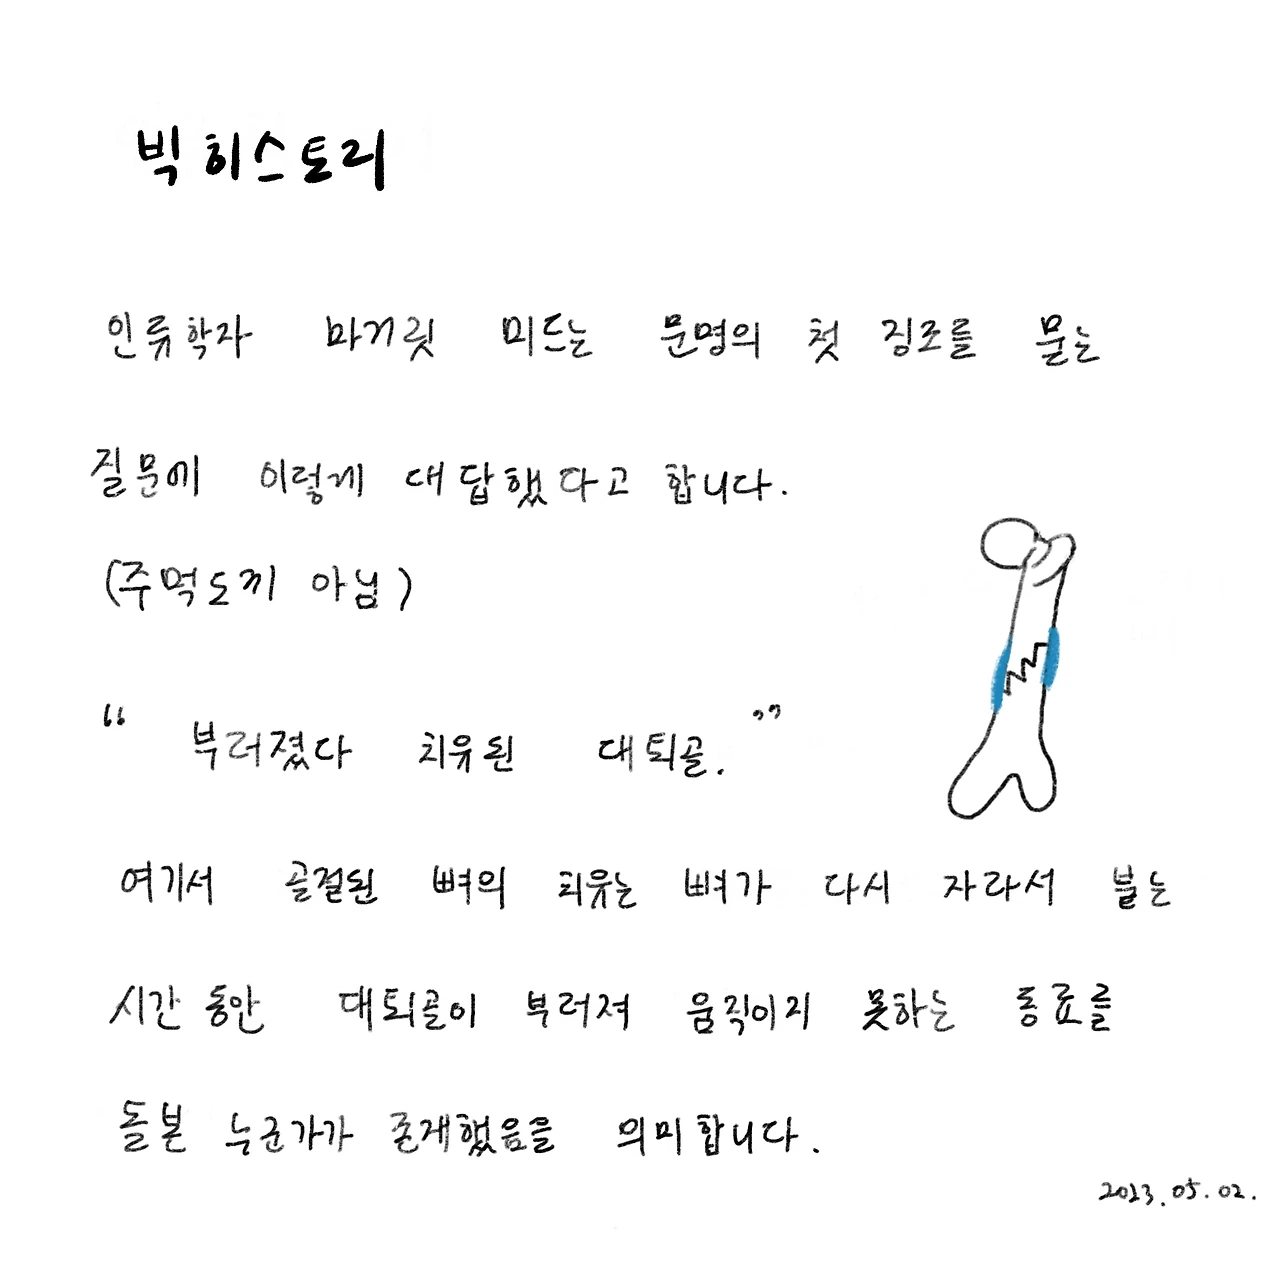 빅 히스토리
인류학자 마거릿 미드는 문명의 첫 징조를 묻는
질문에 이렇게 대답했다고 합니다.
(주먹도끼 아님)
“ 부러졌다 치유된 대퇴골. ”
여기서 골절된 뼈의 치유는 뼈가 다시 자라서 붙는
시간 동안 대퇴골이 부러져 움직이지 못하는 동료를
돌본 누군가가 존재했음을 의미합니다.
2023.05.02.